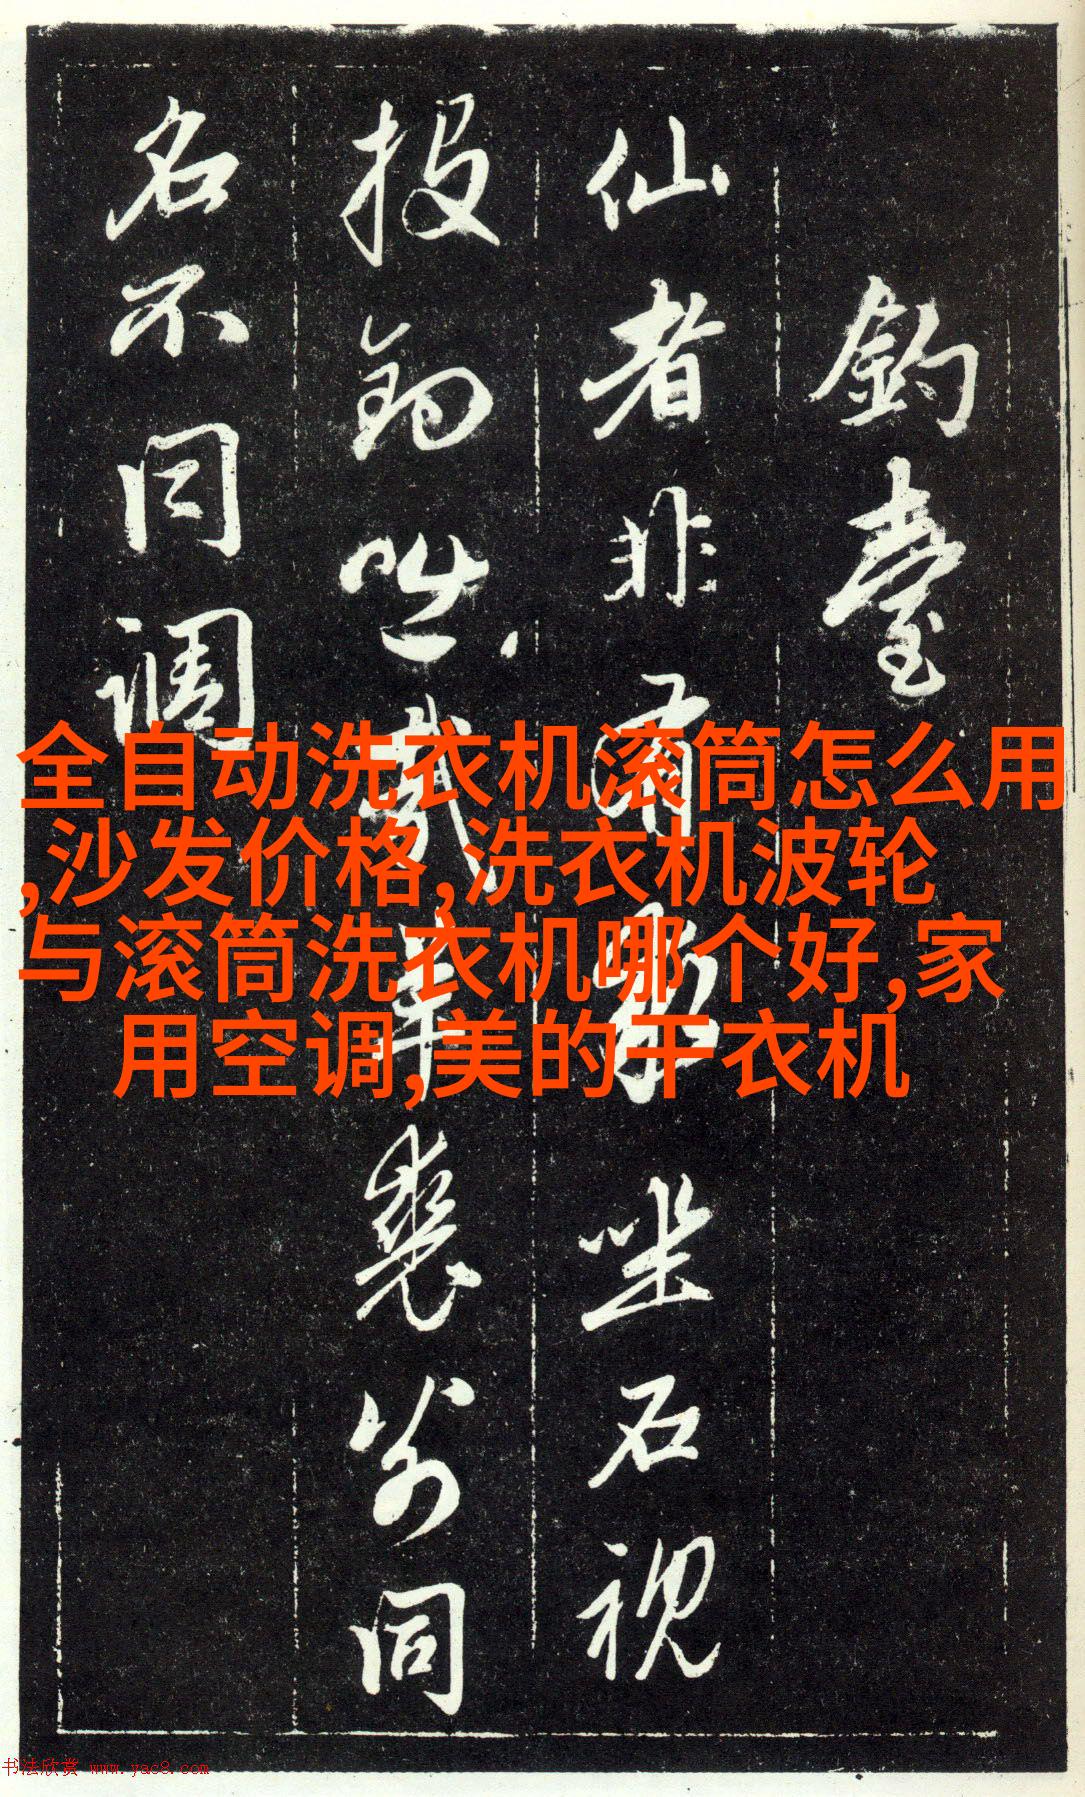 釣臺
仙者非有求坐石視
投釣咄哉輩裘名同
名不同调
全自动洗衣机滚筒怎么用
,沙发价格,洗衣机波轮
与滚筒洗衣机哪个好,家
用空调,美的干衣机
书法欣赏 www.yac8.com